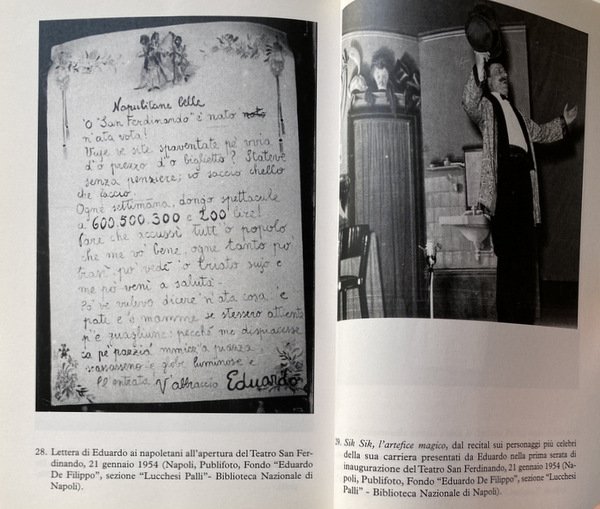 Napulitane belle
'O "San Ferdinando" è nato noto
n'ata vota!
Vuje ve site spaventate pe' vvia
d''o prezzo d''o biglietto? Stateve
senza penziere; io saccio chello
che faccio.
Ogne settimana, dongo spettacule
a 600, 500, 300 e 200 lire!
Pare che accussì tutt''o popolo
che me vo' bene, ogne tanto pò
trasì, pò vedé 'o triato sujo e
me pò venì a salutà.
Po' ve vulevo dicere n'ata cosa: 'e
pate e 'e mamme se stessero attiente
p''e guagliune: pecché me dispiacesse
ca pe' pazzià mmiez''a piazza
scassasseno 'e globe luminose e
ll'entrata V'abbraccio Eduardo
28. Lettera di Eduardo ai napoletani all'apertura del Teatro San Fer-
dinando, 21 gennaio 1954 (Napoli, Publifoto, Fondo "Eduardo
De Filippo", sezione "Lucchesi Palli"- Biblioteca Nazionale di
Napoli).
29. Sik Sik, l'artefice magico, dal recital sui personaggi più celebri
della sua carriera presentati da Eduardo nella prima serata di
inaugurazione del Teatro San Ferdinando, 21 gennaio 1954 (Na-
poli, Publifoto, Fondo "Eduardo De Filippo", sezione "Lucchesi
Palli" - Biblioteca Nazionale di Napoli).